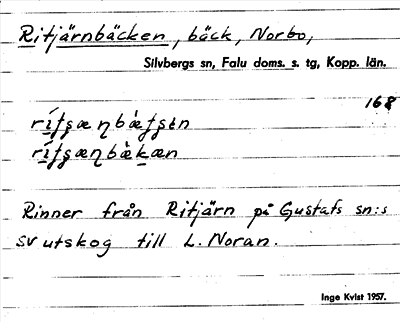 Ritjärnbäcken, bäck, Norbo,
Silvbergs sn, Falu doms. s. tg, Kopp. län.
168
Rinner från Ritjärn på Gustafs sn:s
sv utskog till L. Noran.
Inge Kvist 1957.